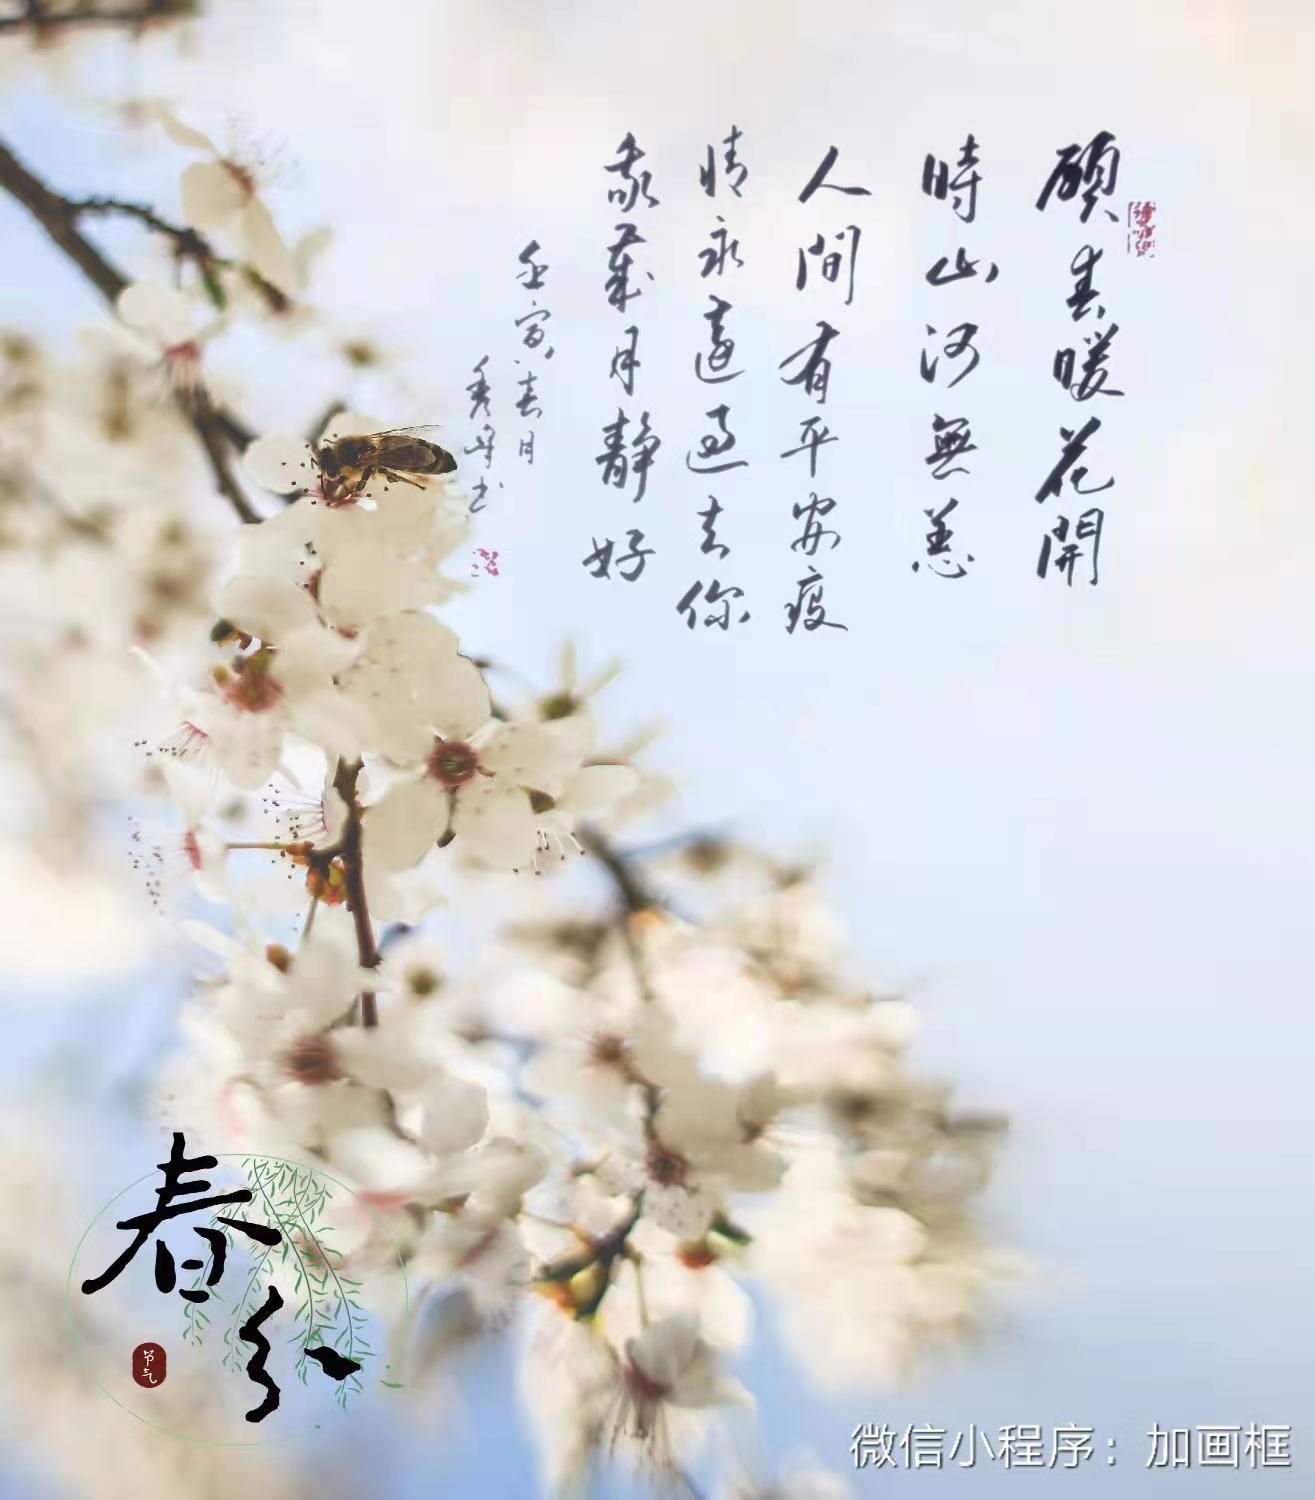 願春暖花開
時山河無恙
人間有平安疫
情永遠過去你
我歲月靜好
壬寅春月
秀峰書
春分
节气
微信小程序：加画框